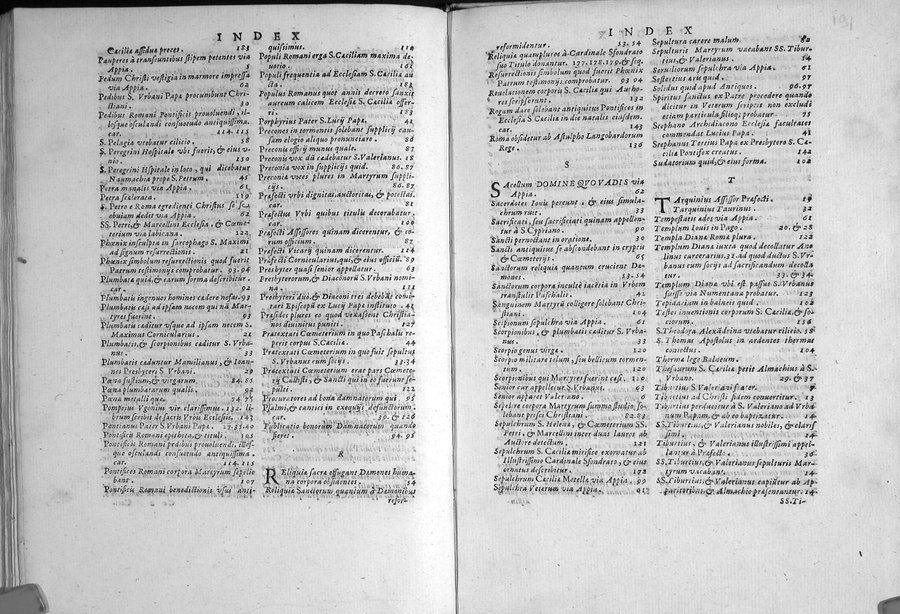 INDEX
Cæcilia assidue preces. 183
Pauperes à transeuntibus stipem petentes via
Appia. 5
Pedum Christi vestigia in marmore impressa
via Appia. 62
Pedibus S. Vrbani Papæ procumbunt Chri-
stiani. 30
Pedibus Romani Pontificis prouoluendi, il-
losque osculandi consuetudo antiquissima.
car. 114. 115
S. Pelagia verberatur cilicio. 58
S. Peregrini Hospitale vbi fuerit, & eius v-
nio. 150
S. Peregrini Hospitale in loco, qui dicebatur
Naumachia prope S. Petrum. 45
Petra manalis via Appia. 61
Petra scelerata. 119
S. Petro è Roma egredienti Christus se sc
obuiam dedit via Appia. 62
SS. Petri, & Marcellini Ecclesia, & Cœme-
terium via labicana. 122
Phœnix insculpta in sarcophago S. Maximi
ad signum resurrectionis. 21
Phœnix simbolum resurrectionis quod fuerit
Patrum testimonijs comprobatur. 93. 94
Plumbatæ quid, & earum forma describitur.
car. 92
Plumbatis ingenuos homines cædere nefas. 93
Plumbatis cæsi ad necem non qui nā Mar-
tyres fuerint. 93
Plumbatis cæditur vsque ad ipsam necem S.
Maximus Cornicularius. 21
Plumbatis, & scorpionibus cæditur S. Vrba-
nus. 33
Plumbatis cæduntur Mamilianus, & Ioan-
nes Presbyteri S. Vrbani. 29
Pœna fustium, & virgarum. 84. 85
Pœna plumbatarum qualis. 92
Pœna metalli quæ. 74. 75
Pompeius Vgonius vir clarissimus. 132. li-
brum scribit de sacris Vrbis Ecclesijs. 143
Pontianus Pater S. Vrbani Papæ. 27. 35. 40
Pontificis Romani epitheta, & tituli. 105
Pontificis Romani pedibus prouoluendi, illos-
que osculandi consuetudo antiquissima.
car. 114. 115
Pontifices Romani corpora Martyrum sepelie
bant. 107
Pontificis Romani benedictionis vsus anti-
quissimus. 114
Populi Romani erga S. Cæciliam maxima de-
uotio. 163
Populi frequentia ad Ecclesiam S. Cæciliæ au
cta. 183
Populus Romanus quot annis decreto sanxit
aureum calicem Ecclesiæ S. Cæciliæ offer-
ri. 183
Porphyrius Pater S. Lucij Papæ. 41
Præcones in tormentis solebant supplicij cau-
sam elogio aliquo pronunciare. 86
Præconis officij munus quale. 87
Præconis vox dū cædebatur S. Valerianus. 18
Præconis vox in supplicijs quid. 86. 87
Præconis voces plures in Martyrum suppli-
cijs. 86. 87
Præfecti vrbi dignitas, auctoritas, & potestas.
car. 81
Præfectus Vrbi quibus titulis decorabatur.
car. 100
Præfecti Assessores quinam dicerentur, & eo-
rum officium. 87
Præfecti Vicarij quinam dicerentur. 124
Præfecti Cornicularius, qui, & eius officiū. 89
Presbyter quasi senior appellatur. 63
Presbyterorum, & Diaconorū S. Vrbani nomi-
na. 131
Presbyteri duo, & Diaconi tres debebāt comi-
tari Episcopū ex Lucij Papæ instituto. 41
Præsides plures eo quod vexassent Christia-
nos diuinitus puniti. 127
Prætextati Cœmeterium in quo Paschalis re-
perit corpus S. Cæciliæ. 44
Prætextati Cœmeterium in quo fuit sepultus
S. Vrbanus cum socijs. 33. 34
Prætextati Cœmeterium erat pars Cœmete-
rij Callisti, & Sancti qui in eo fuerunt se-
pulti. 122
Procuratores ad bona damnatorum qui 95
Psalmi, & cantici in exequijs defunctorum.
car. 63. & 126
Publicatio bonorum Damnatorum quando
fieret. 94. 95
R
Reliquiæ sacræ effugant Dæmones huma-
na corpora obsidentes. 54
Reliquiæ Sanctorum quantum à Dæmonibus
refor-
INDEX
reformidentur. 53. 54
Reliquiæ quamplures à Cardinale Sfondrato
suo Titulo donantur. 177. 178. 179. & seq.
Resurrectionis simbolum quod fuerit Phœnix
Patrum testimonijs comprobatur. 93 94
Reuelationem corporis S. Cæciliæ qui Autho-
res scripserunt. 132
Rogam dare solebant antiquitus Pontifices in
Ecclesia S. Cæciliæ in die natalis eiusdem.
car. 143
Roma obsidetur ab Astulpho Langobardorum
Rege. 136
S
Sacellum DOMINE QVO VADIS via
Appia. 62
Sacerdotes Iouis pereunt, & eius simula-
chrum ruit. 33
Sacrificati, seu sacrificiati quinam appellen-
tur à S. Cypriano. 90
Sancti pernoctant in oratione. 30
Sancti antiquitus se abscondebant in cryptis
& Cœmeterijs. 65
Sanctorum reliquiæ quantum crucient De-
mones. 53. 54
Sanctorum corpora incultè iacentia in Vrbem
transtulit Paschalis. 42
Sanguinem Martyrū colligere solebant Chri-
stiani. 104
Scipionum sepulchra via Appia. 61
Scorpionibus, & plumbatis cæditur S. Vrba-
nus. 33
Scorpio genus virgæ. 120
Scorpio militare telum, seu bellicum tormen-
tum. 120
Scorpionibus qui Martyres fuerint cæsi. 120
Senior cur appelletur S. Vrbanus. 63
Senior apparet Valeriano. 6
Sepelire corpora Martyrum summo studio, so-
lebant prisci Christiani. 89
Sepulchrum S. Helenæ, & Cœmeterium SS.
Petri, & Marcellini inter duas lauros ab
Auctore detectum. 121
Sepulchrum S. Cæciliæ mirificè exornatur ab
Illustrissimo Cardinale Sfondrato, & eius
ornatus describitur. 178
Sepulchrum Cæciliæ Metellæ via Appia. 99
Sepulchra Veterum via Appia. 61
Sepultura carere malum 80
Sepulturis Martyrum vacabant SS. Tibur-
tius, & Valerianus. 14
Sepultiorum sepulchra via Appia. 61
Sestertius æris quid. 97
Solidus quid apud Antiquos. 96. 97
Spiritus sanctus ex Patre procedere quando
dicitur in Veterum scriptis non excludi
etiam particula filioq; probatur. 75
Stephano Archidiacono Ecclesiæ facultates
commendat Lucius Papa. 41
Stephanus Tertius Papa ex Presbytero S. Cæ-
ciliæ Pontifex creatus. 142
Sudatorium quid, & eius forma. 102
T
Tarquinius Assessor Præfecti. 19
Tarquinius Taurinus. 32
Tempestatis ædes via Appia. 61
Templum Iouis in Pago. 20. & 28
Templa Dianæ Romæ plura. 122
Templum Dianæ iuxta quod decollatur Ano-
linus carcerarius. 31. ad quod ductus S. Vr-
banus cum socijs ad sacrificandum decolla
tur. 33. & 34
Templum Dianæ vbi est passus S. Vrbanus
fuisse via Numentana probatur. 123
Tepidarium in balneis quid. 102
Testes inuentionis corporum S. Cæciliæ, & so-
ciorum. 156
S. Theodora Alexādrina vtebatur cilicio. 58
S. Thomas Apostolus in ardentes thermas
coniectus. 104
Thermæ lege Balneum.
Thesaurum S. Cæciliæ petit Almachius à S.
Vrbano. 29. & 37
Tiburtius S. Valeriani frater. 9
Tiburtius ad Christi fidem conuertitur. 13
Tiburtius perducitur à S. Valeriano ad Vrba
num Papam, & ab eo baptizatur. 14
Tiburtius, & Valerianus nobiles, & clarissi
simi. 14
Tiburtius, & Valerianus illustrissimi appel-
lantur à Præfecto. 36
SS. Tiburtius, & Valerianus sepulturis Mar-
tyrum vacabant. 14
SS. Tiburtius, & Valerianus capiutur ab Ap-
paritoribus, & Almachio præsentantur. 14
SS. Ti-